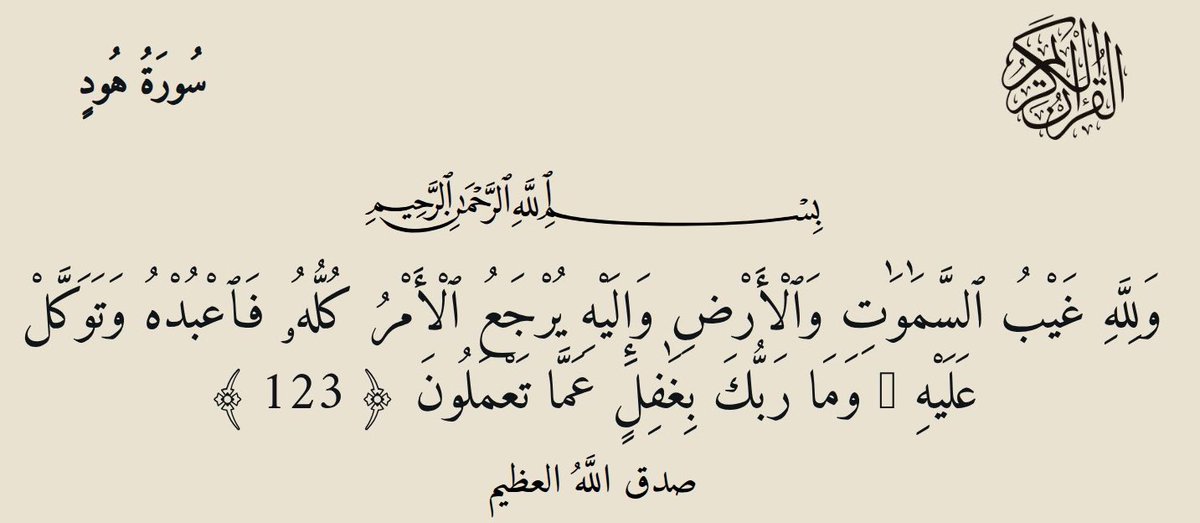 القرآن الكريم
سُورَةُ هُودٍ
بِسْمِ اللَّهِ الرَّحْمَٰنِ الرَّحِيمِ
وَلِلَّهِ غَيْبُ ٱلسَّمَٰوَٰتِ وَٱلْأَرْضِ وَإِلَيْهِ يُرْجَعُ ٱلْأَمْرُ كُلُّهُۥ فَٱعْبُدْهُ وَتَوَكَّلْ
عَلَيْهِ ▯ وَمَا رَبُّكَ بِغَٰفِلٍ عَمَّا تَعْمَلُونَ ﴿ 123 ﴾
صدق اللَّهُ العظيم